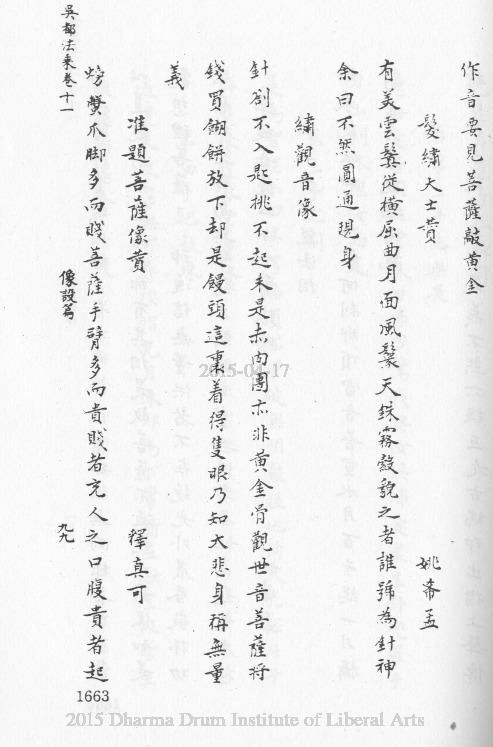 作音要見菩薩敲黃金
髮繡大士贊
姚希孟
有美雲鬟從橫屈曲月面風鬟天銖霧縠貌之者誰號為針神
余曰不然圓通現身
繡觀音像
針劄不入匙挑不起未是赤肉團亦非黃金骨觀世音菩薩將
錢買餬餅放下却是饅頭這裏着得隻眼乃知大悲身稱無量
義
准題菩薩像贊
釋真可
螃蟹爪脚多而賤菩薩手臂多而貴賤者充人之口腹貴者起
吳都法乘卷十一
像設篇
九九
1663
2015-04-17
2015 Dharma Drum Institute of Liberal Arts